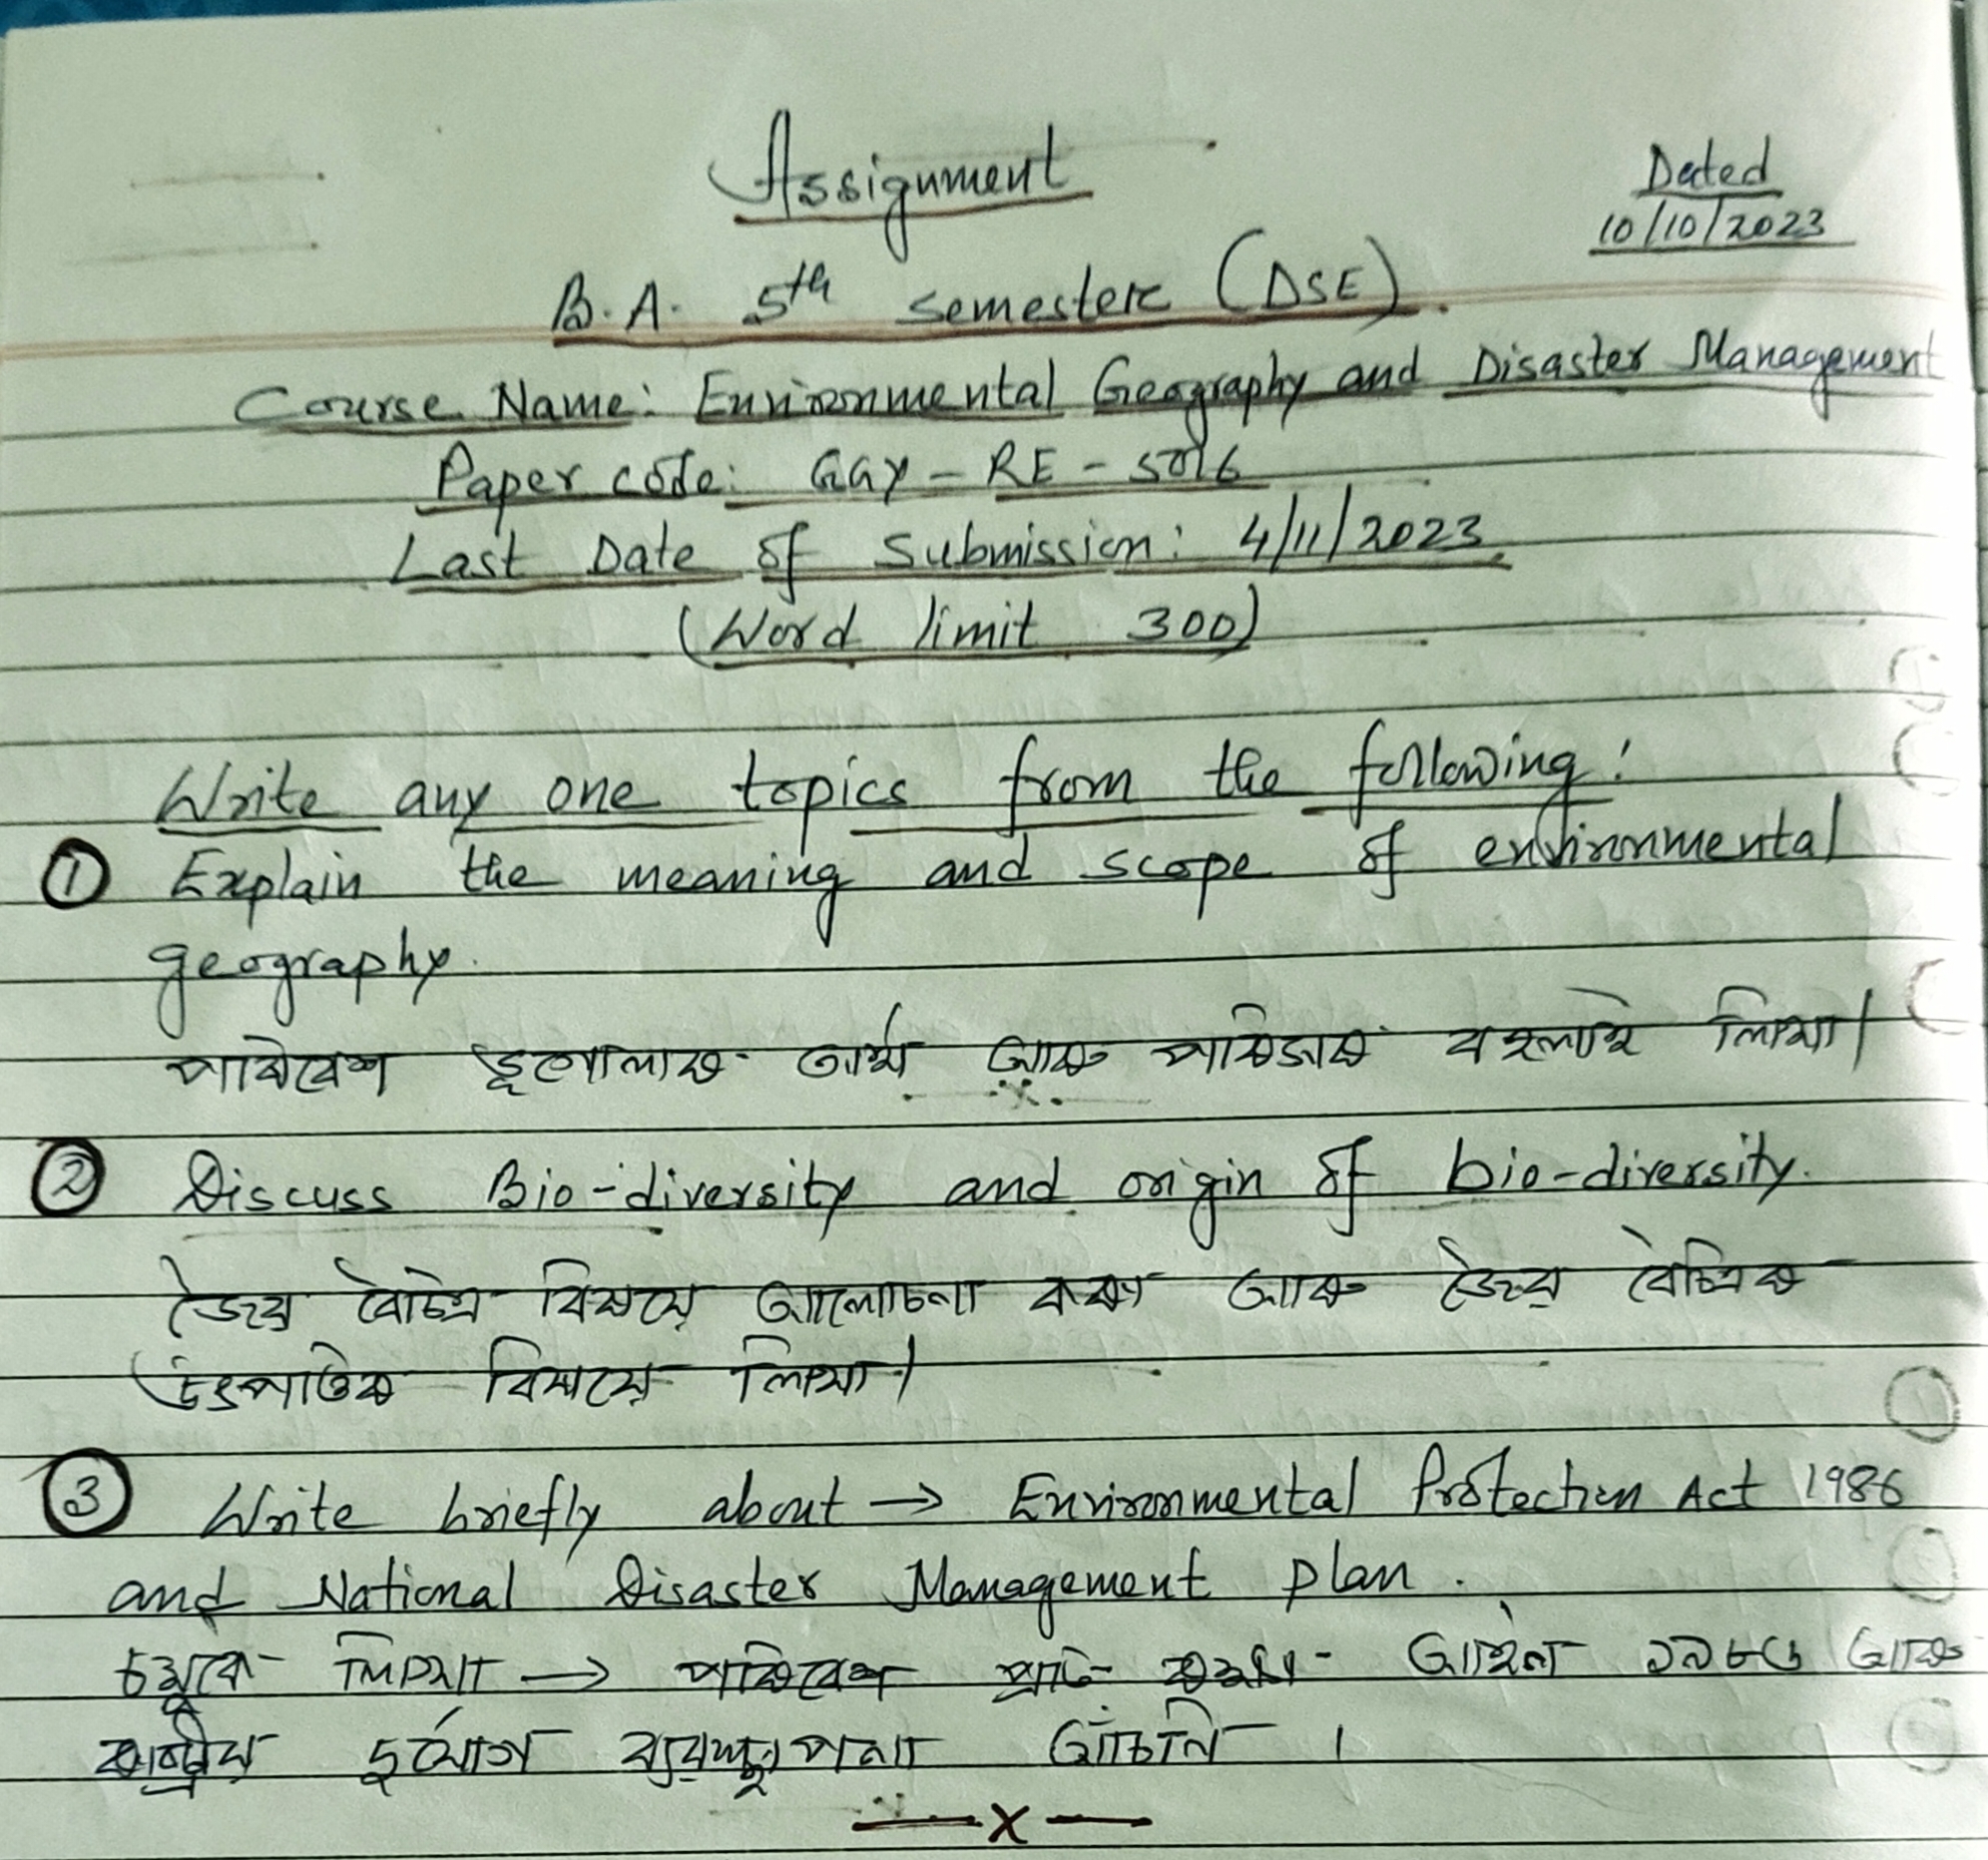 Assignment
Dated
10/10/2023
B.A. 5th semester (DSE).
Course Name: Environmental Geography and Disaster Management
Paper code: GGY-RE-5016
Last Date of Submission: 4/11/2023.
(Word limit 300)
Write any one topics from the following:
① Explain the meaning and scope of environmental
geography.
পাৰিবেশ ভূগোলৰ অৰ্থ আৰু পৰিসৰ বহলাই লিখা।
② Discuss Bio-diversity and origin of bio-diversity.
জৈৱ বৈচিত্ৰ বিষয়ে আলোচনা কৰা আৰু জৈৱ বৈচিত্ৰৰ
উৎপত্তিৰ বিষয়ে লিখা।
③ Write briefly about → Environmental Protection Act 1986
and National Disaster Management plan.
চমুকৈ লিখা → পৰিবেশ আইন ১৯৮৬ আৰু
ৰাষ্ট্ৰীয় দুৰ্যোগ ব্যৱস্থাপনা আঁচনি ।
—x—